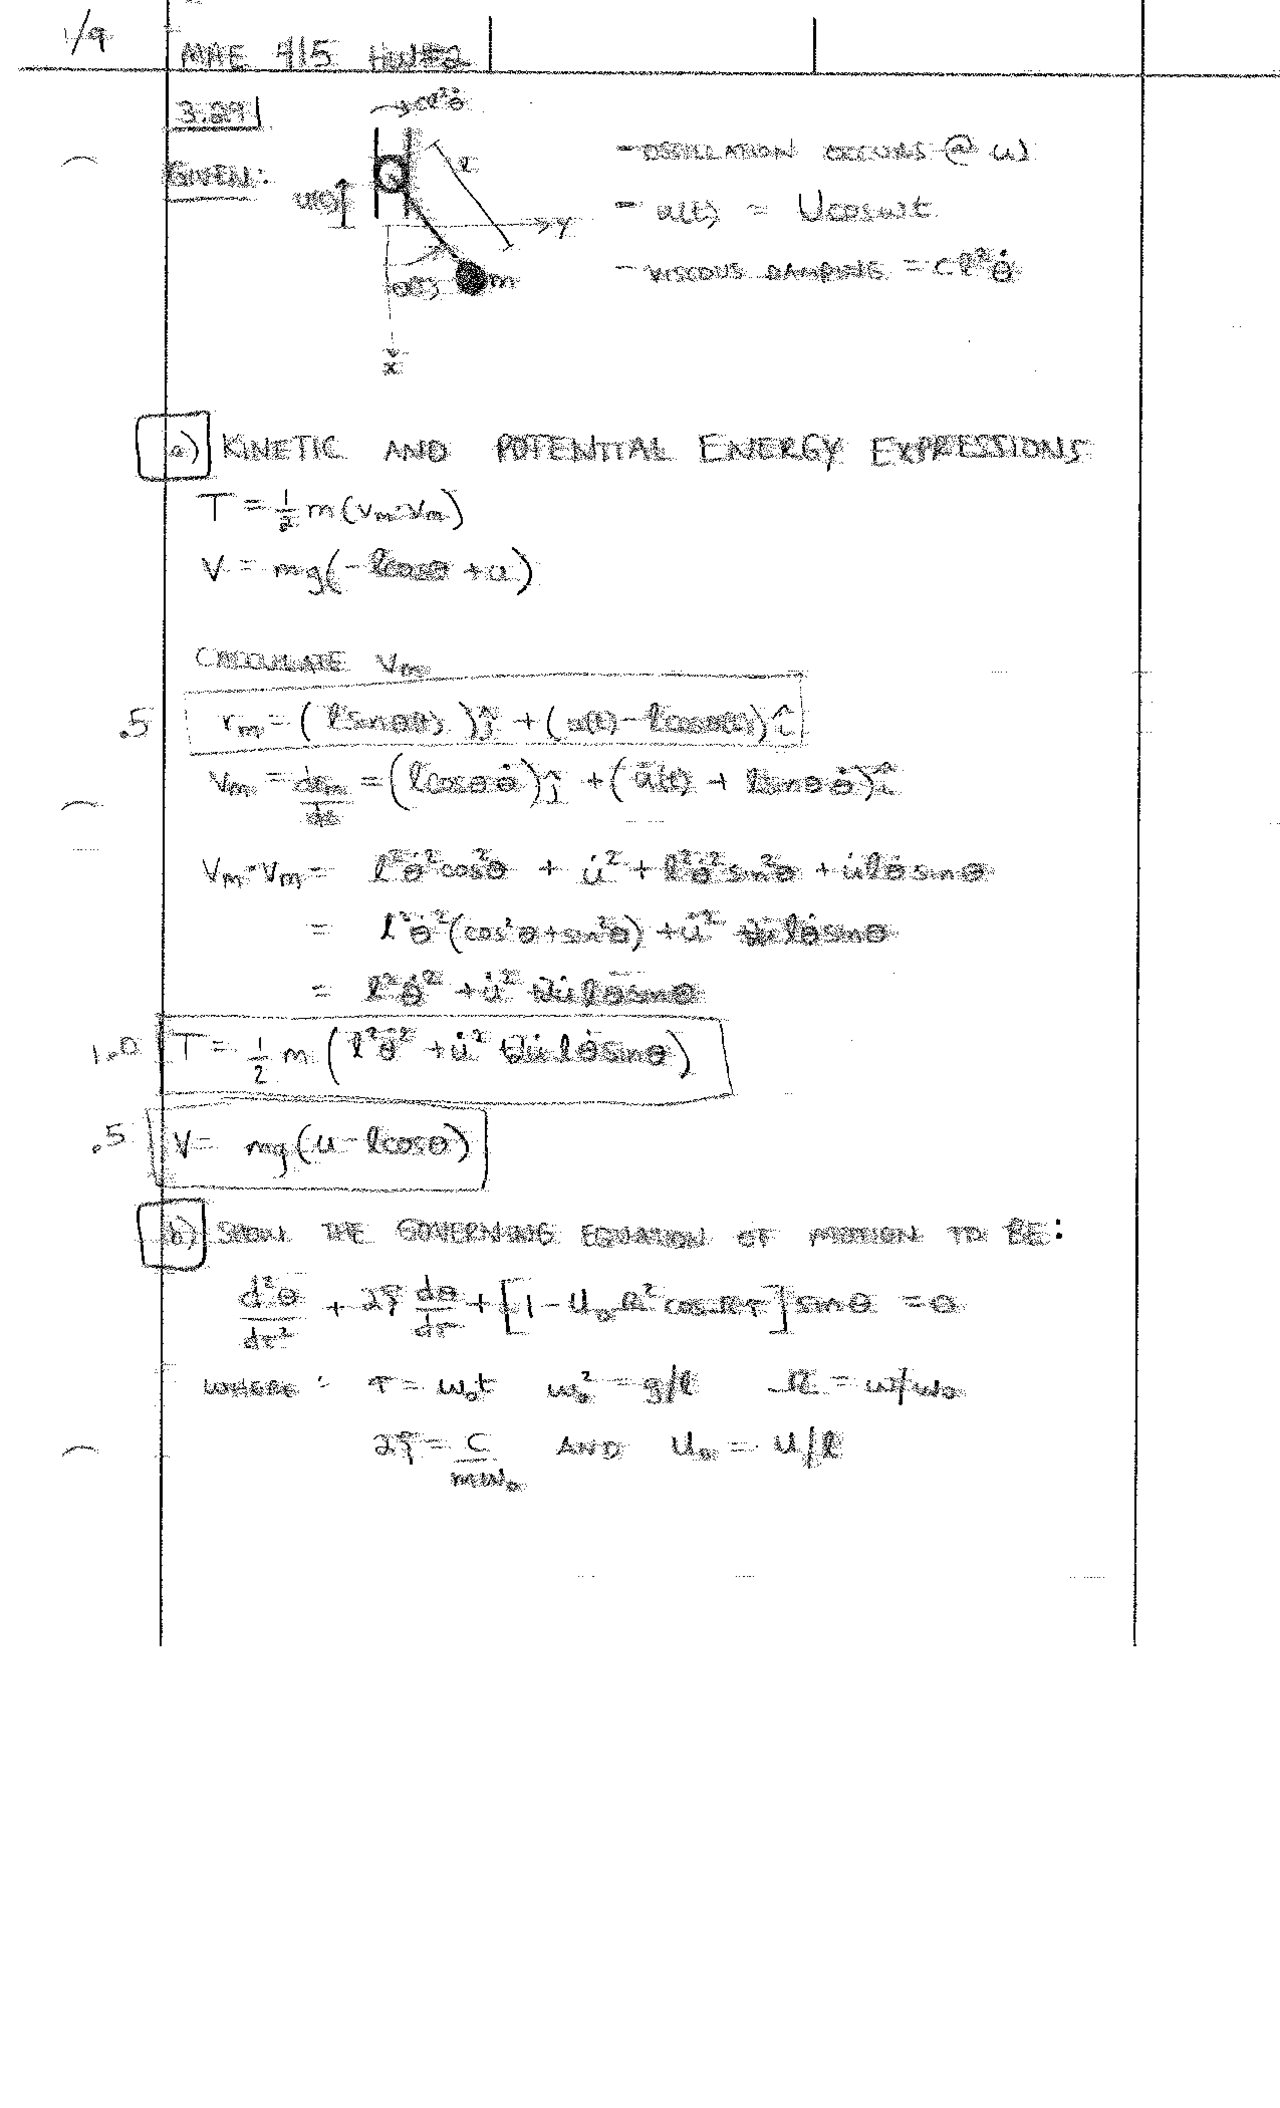 1/9
MAE 415 HW#2
3.29
cl²θ̇
GIVEN:
l
- OSSILLATION OCCURS @ ω
u(t)
y
- u(t) = Ucosωt
θ(t)
m
- VISCOUS DAMPING = cl²θ̇
x
a) KINETIC AND POTENTIAL ENERGY EXPRESSIONS
T = 1/2 m(vm·vm)
V = mg(-lcosθ + u)
CALCULATE Vm
.5 rm = (lsinθ(t))ĵ + (u(t) - lcosθ(t))î
Vm = drm/dt = (lcosθ θ̇)ĵ + (u̇(t) + lsinθ θ̇)î
Vm·Vm = l²θ̇²cos²θ + u̇² + l²θ̇²sin²θ + u̇lθ̇sinθ
= l²θ̇²(cos²θ+sin²θ) + u̇² + 2u̇lθ̇sinθ
= l²θ̇² + u̇² + 2u̇lθ̇sinθ
1.0 T = 1/2 m (l²θ̇² + u̇² + 2u̇lθ̇sinθ)
.5 V = mg(u - lcosθ)
b) SHOW THE GOVERNING EQUATION OF MOTION TO BE:
d²θ/dτ² + 2ξ dθ/dτ + [1 - U₀Ω²cosΩτ] sinθ = 0
WHERE: τ = ω₀t ω₀² = g/l Ω = ω/ω₀
2ξ = c/mω₀ AND U₀ = U/l